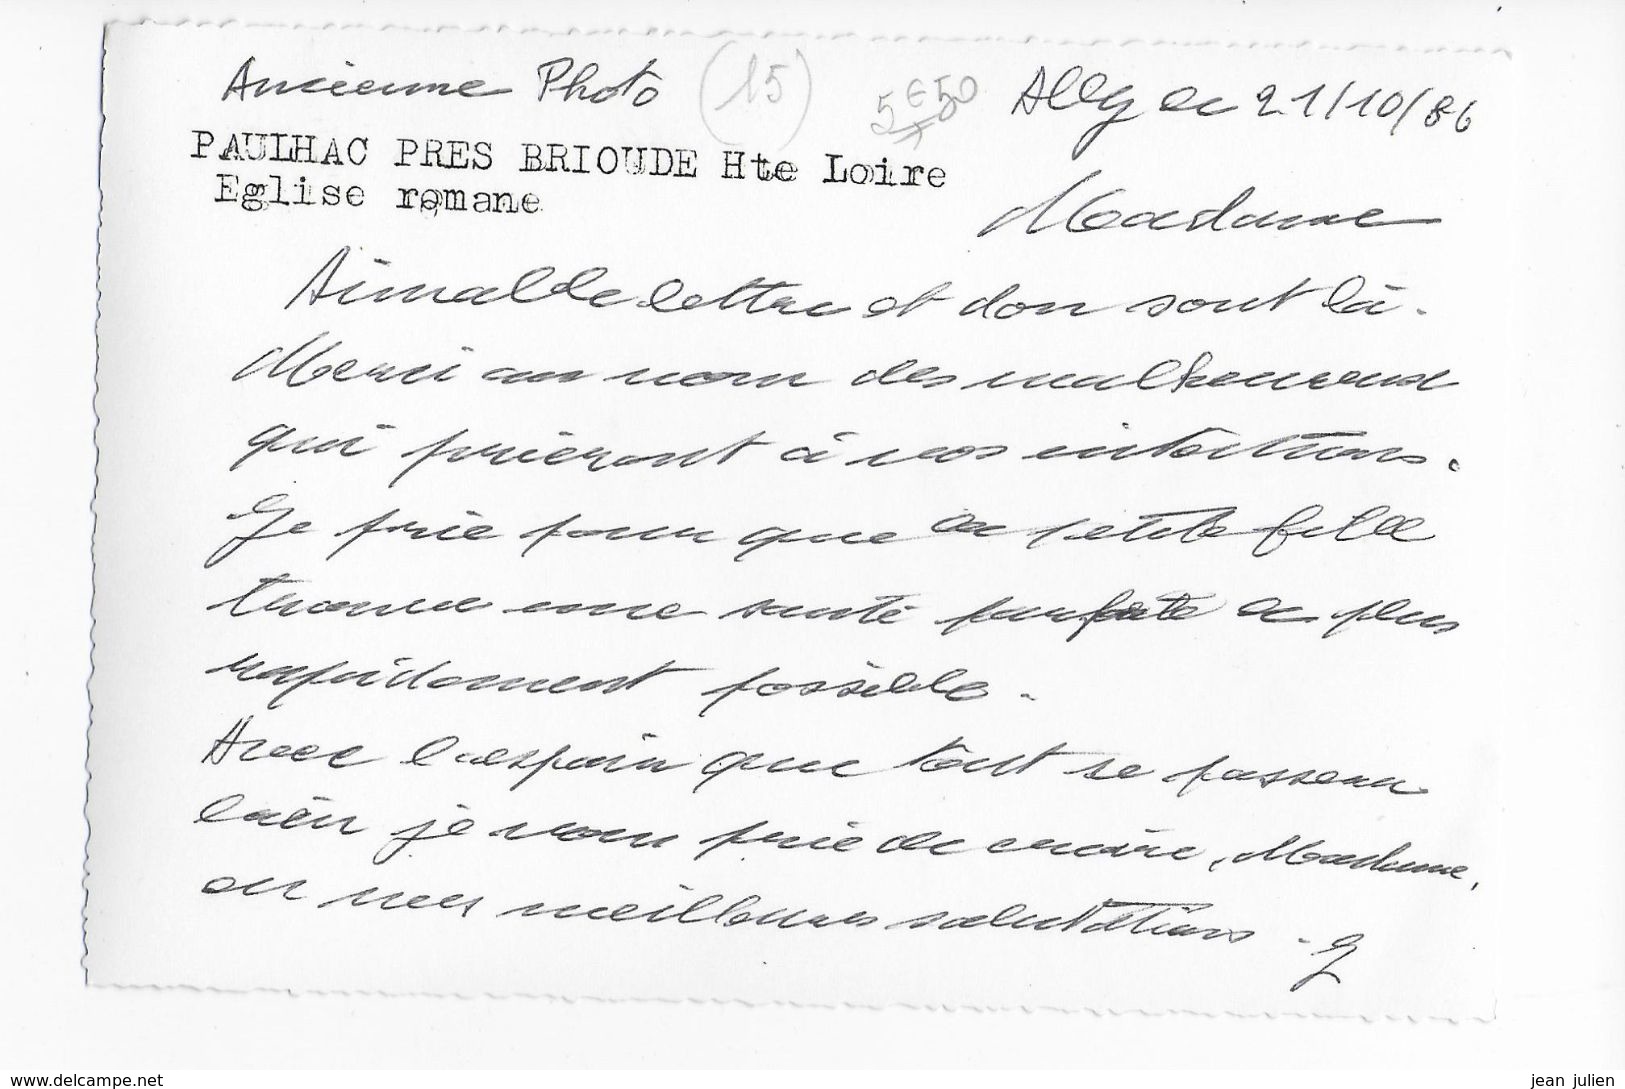 Ancienne Photo (15) 5€50 Ally le 21/10/86
PAULHAC PRES BRIOUDE Hte Loire
Eglise romane
Madame
Aimable lettre et don sont là.
Merci au nom des malheureux
qui prieront à vos intentions.
Je prie pour que la petite fille
trouve une santé parfaite le plus
rapidement possible.
Avec l'espoir que tout se passera
bien je vous prie de croire, Madame,
en mes meilleures salutations.
www.delcampe.net
jean julien